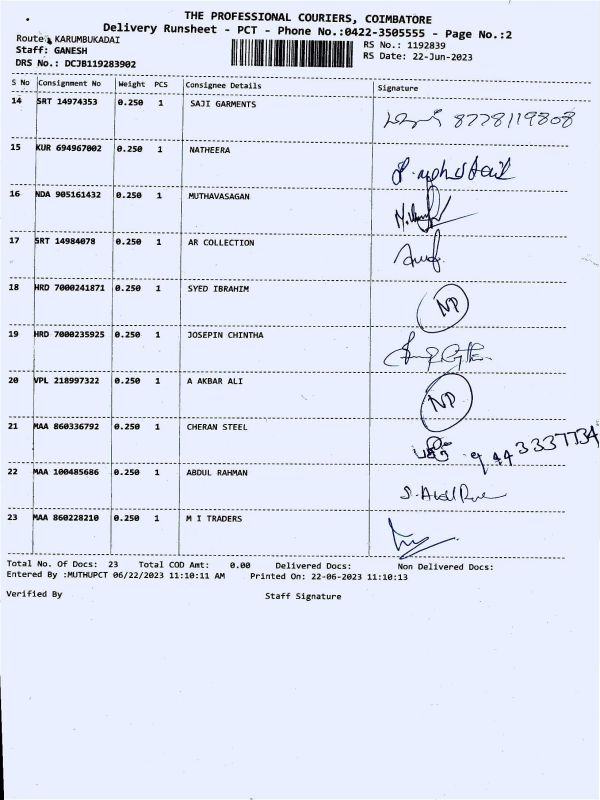 THE PROFESSIONAL COURIERS, COIMBATORE
Delivery Runsheet - PCT - Phone No.:0422-3505555 - Page No.:2
Route: KARUMBUKADAI
Staff: GANESH
DRS No.: DCJB119283902
RS No.: 1192839
RS Date: 22-Jun-2023
S No Consignment No Weight PCS Consignee Details Signature
14 SRT 14974353 0.250 1 SAJI GARMENTS 8778119808
15 KUR 694967002 0.250 1 NATHEERA
16 NDA 905161432 0.250 1 MUTHAVASAGAN
17 SRT 14984078 0.250 1 AR COLLECTION
18 HRD 7000241871 0.250 1 SYED IBRAHIM NP
19 HRD 7000235925 0.250 1 JOSEPIN CHINTHA
20 VPL 218997322 0.250 1 A AKBAR ALI NP
21 MAA 860336792 0.250 1 CHERAN STEEL 9443337734
22 MAA 100485686 0.250 1 ABDUL RAHMAN
23 MAA 860228210 0.250 1 M I TRADERS
Total No. Of Docs: 23 Total COD Amt: 0.00 Delivered Docs: Non Delivered Docs:
Entered By :MUTHUPCT 06/22/2023 11:10:11 AM Printed On: 22-06-2023 11:10:13
Verified By Staff Signature